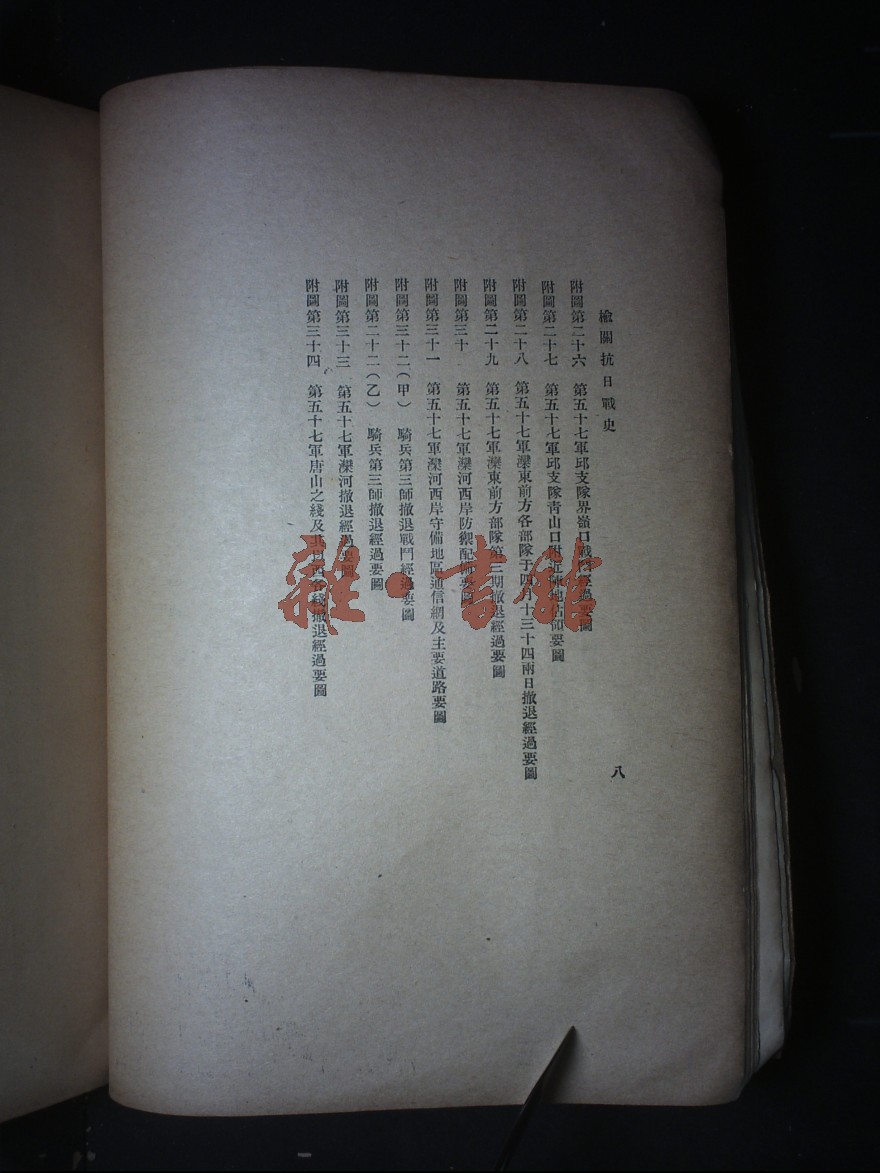 榆關抗日戰史
附圖第二十六　第五十七軍邱支隊界嶺口戰鬥經過要圖
附圖第二十七　第五十七軍邱支隊青山口附近陣地佔領要圖
附圖第二十八　第五十七軍灤東前方各部隊于四月十三十四兩日撤退經過要圖
附圖第二十九　第五十七軍灤東前方部隊第三期撤退經過要圖
附圖第三十　第五十七軍灤河西岸防禦配備要圖
附圖第三十一　第五十七軍灤河西岸守備地區通信網及主要道路要圖
附圖第三十二（甲）　騎兵第三師撤退戰鬥經過要圖
附圖第二十二（乙）　騎兵第三師撤退經過要圖
附圖第三十三　第五十七軍灤河撤退經過要圖
附圖第三十四　第五十七軍唐山之綫及其以西各綫撤退經過要圖
八
雜·書館